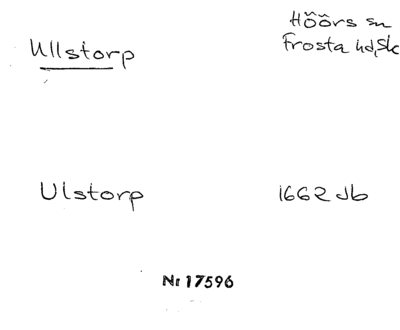 Ullstorp
Höörs sn
Frosta hd, Sk
Ulstorp
1662 Jb
Nr 17596